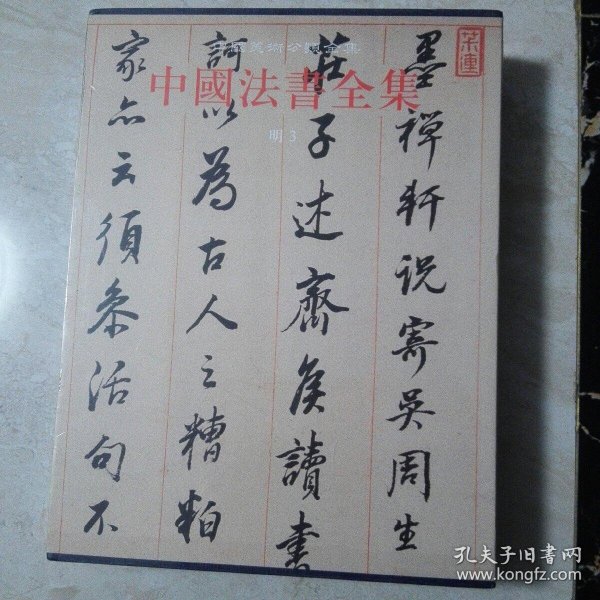 中國美術分類全集
中國法書全集
明 3
墨禪軒说寄吴周生
莊子述齊侯讀書
訶以為古人之糟粕
家亦云須参活句不
朵雲
孔夫子旧书网
www.kongfz.com